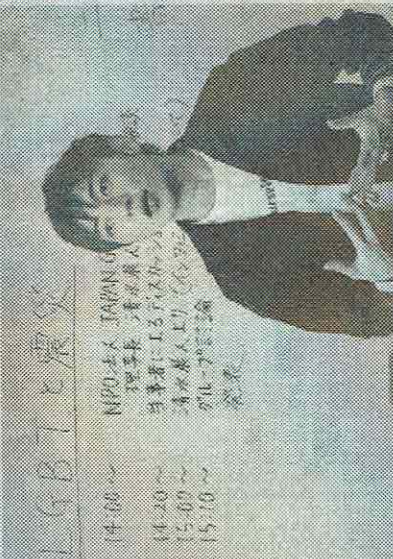 LGBTと震災
14:00~ NPO法人 JAPAN
理事長 清水展人
14:20~ 当事者によるディスカッション
15:00~ 清水展人より
15:10~ グループ討論
発表